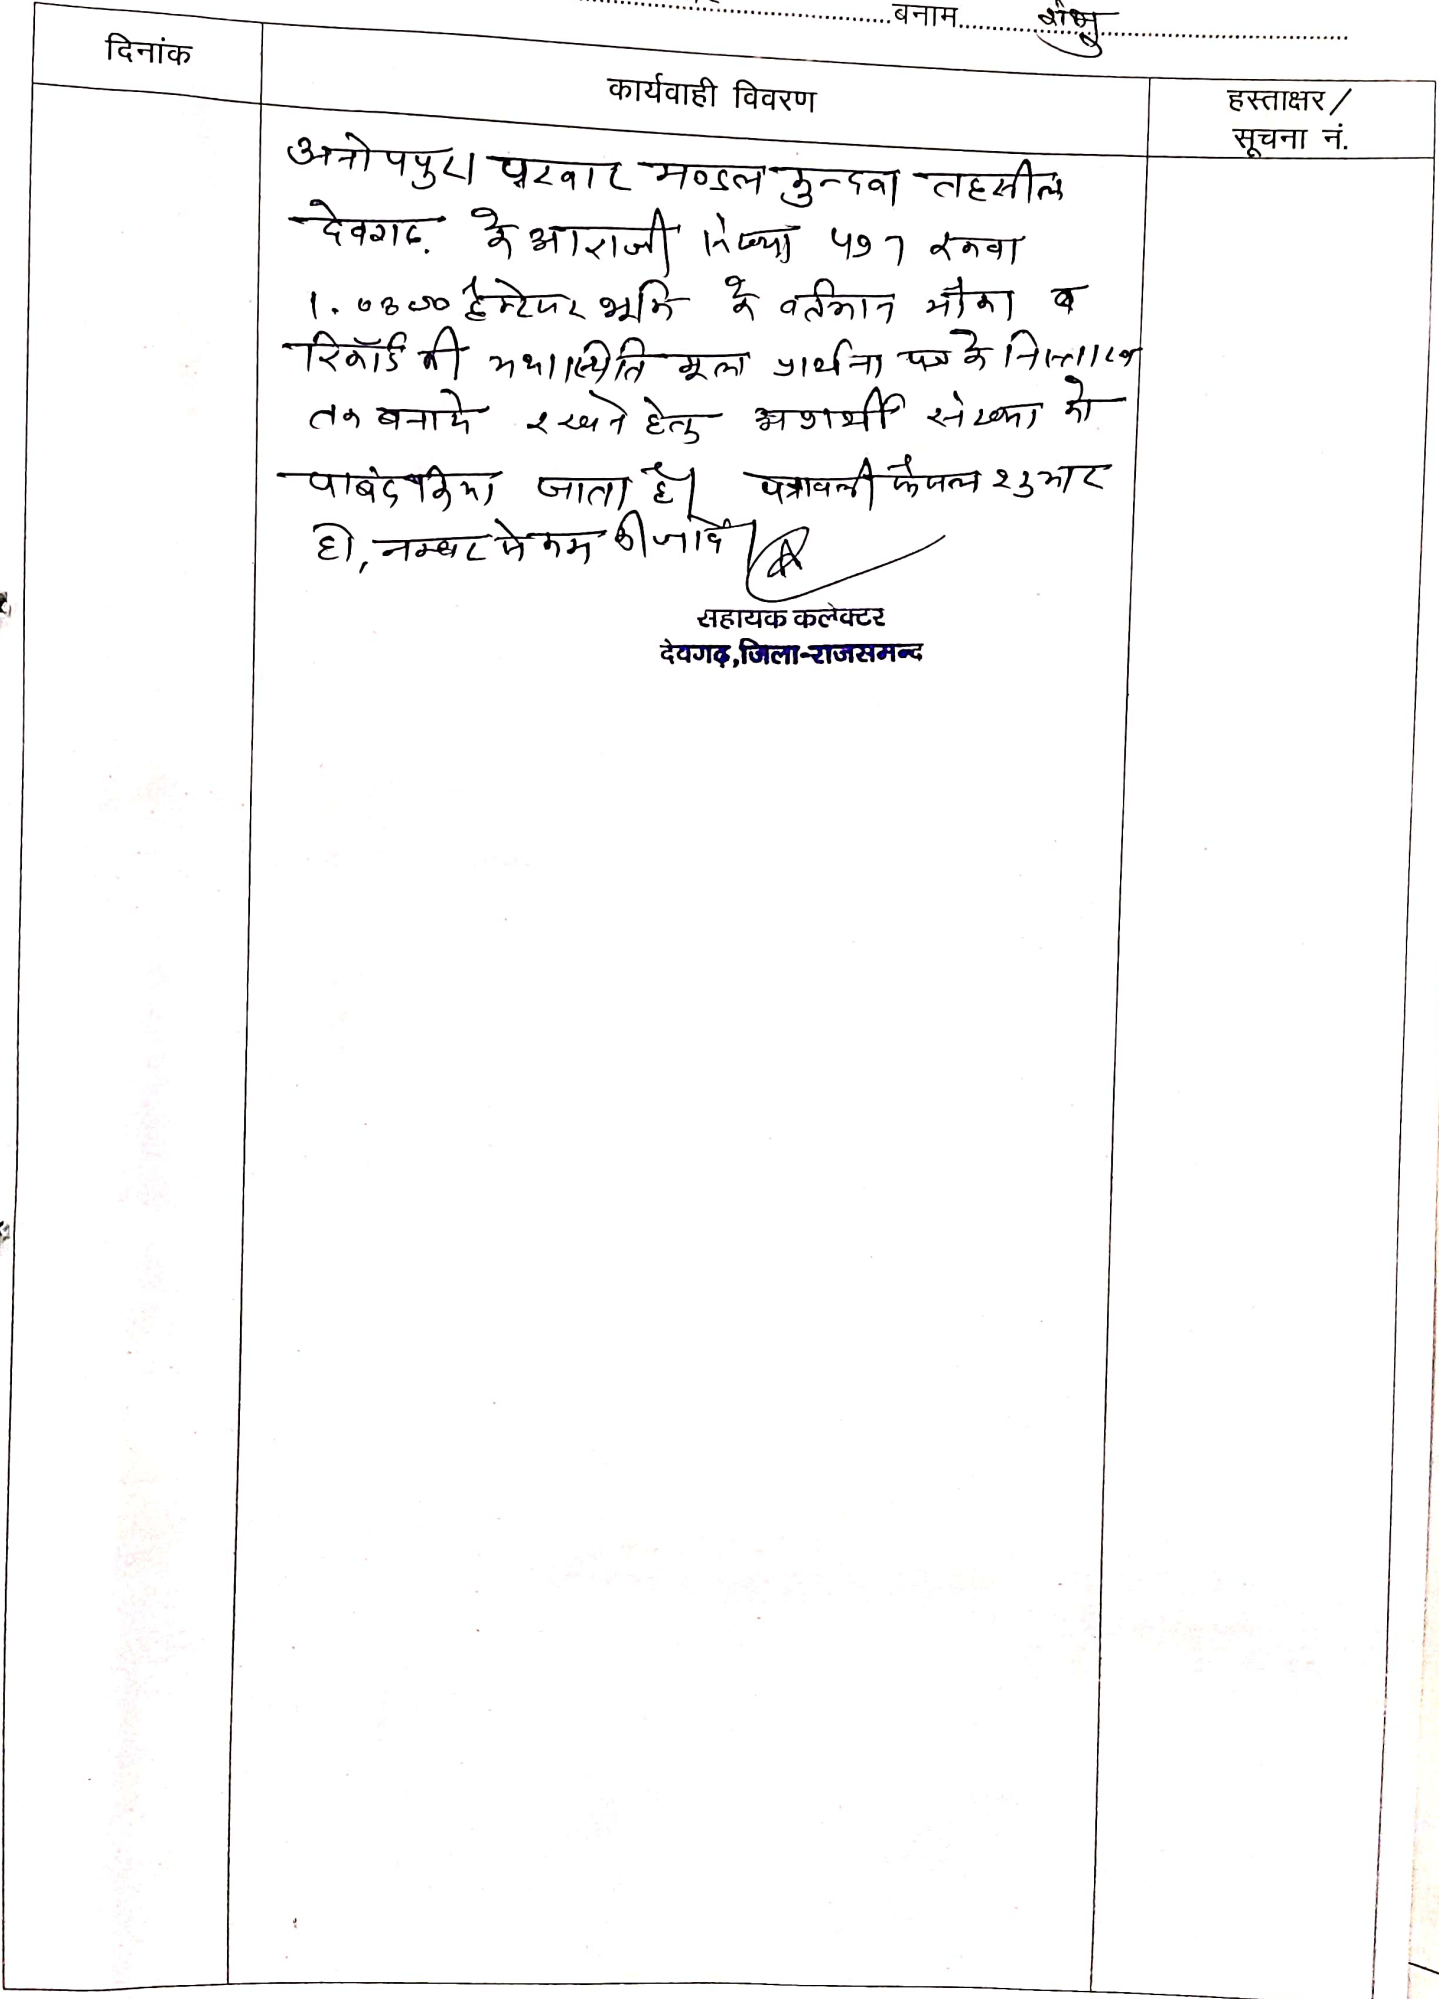 बनाम शंभु
दिनांक
कार्यवाही विवरण
हस्ताक्षर /
सूचना नं.
अनोपपुरा पटवार मण्डल कुन्दवा तहसील
देवगढ. के आराजी संख्या 597 रकबा
हैक्टेयर भूमि के वर्तमान मौका व
रिकॉर्ड की यथास्थिति मूल प्रार्थना पत्र के निस्तारण
तक बनाये रखने हेतु अप्रार्थी संख्या को
पाबंद किया जाता है। पत्रावली फैसल शुमार
हो, नम्बर से कम की जावे।
सहायक कलेक्टर
देवगढ़,जिला-राजसमन्द